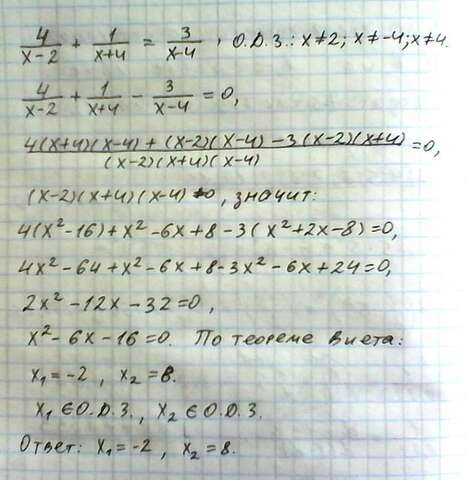 4/(x-2) + 1/(x+4) = 3/(x-4), О.Д.З.: x≠2; x≠-4; x≠4.
4/(x-2) + 1/(x+4) - 3/(x-4) = 0,
(4(x+4)(x-4) + (x-2)(x-4) - 3(x-2)(x+4))/((x-2)(x+4)(x-4)) = 0,
(x-2)(x+4)(x-4) ≠ 0, значит:
4(x²-16) + x² - 6x + 8 - 3(x² + 2x - 8) = 0,
4x² - 64 + x² - 6x + 8 - 3x² - 6x + 24 = 0,
2x² - 12x - 32 = 0,
x² - 6x - 16 = 0. По теореме Виета:
x₁ = -2, x₂ = 8.
x₁ ∈ О.Д.З., x₂ ∈ О.Д.З.
Ответ: x₁ = -2, x₂ = 8.